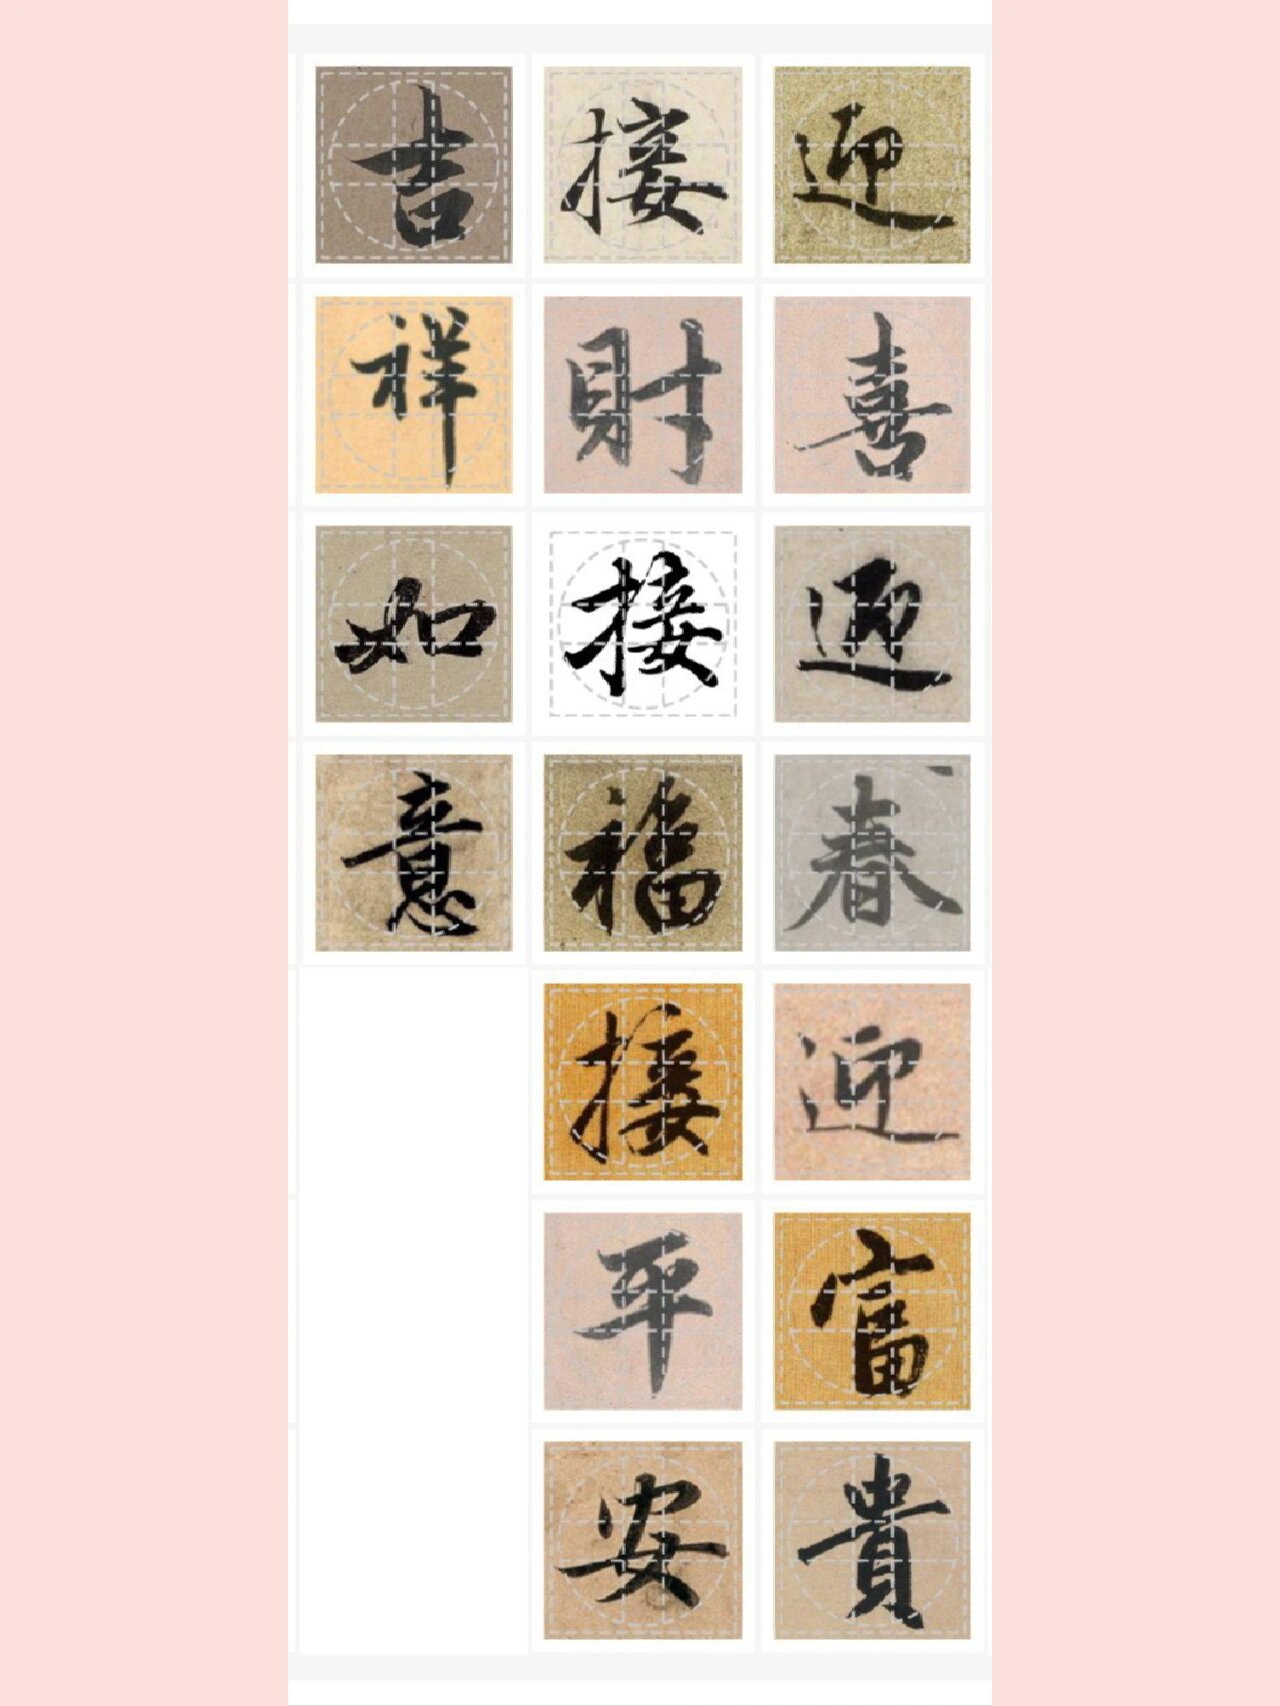 迎喜迎春迎富貴
接財接福接平安
吉祥如意